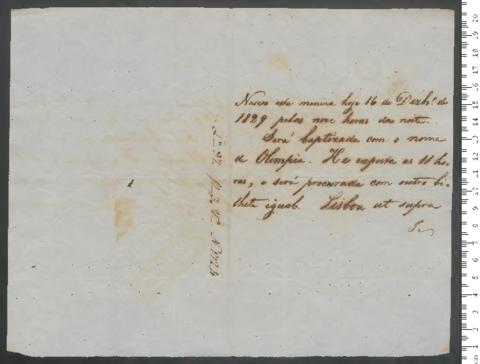 Nasceo esta menina hoje 16 de Dezbr.º de
1829 pelas nove horas da noite.
Será baptizada com o nome
de Olimpia. He exposta as 11 ho-
ras, e será procurada com outro bi-
lhete igual. Lisboa ut supra